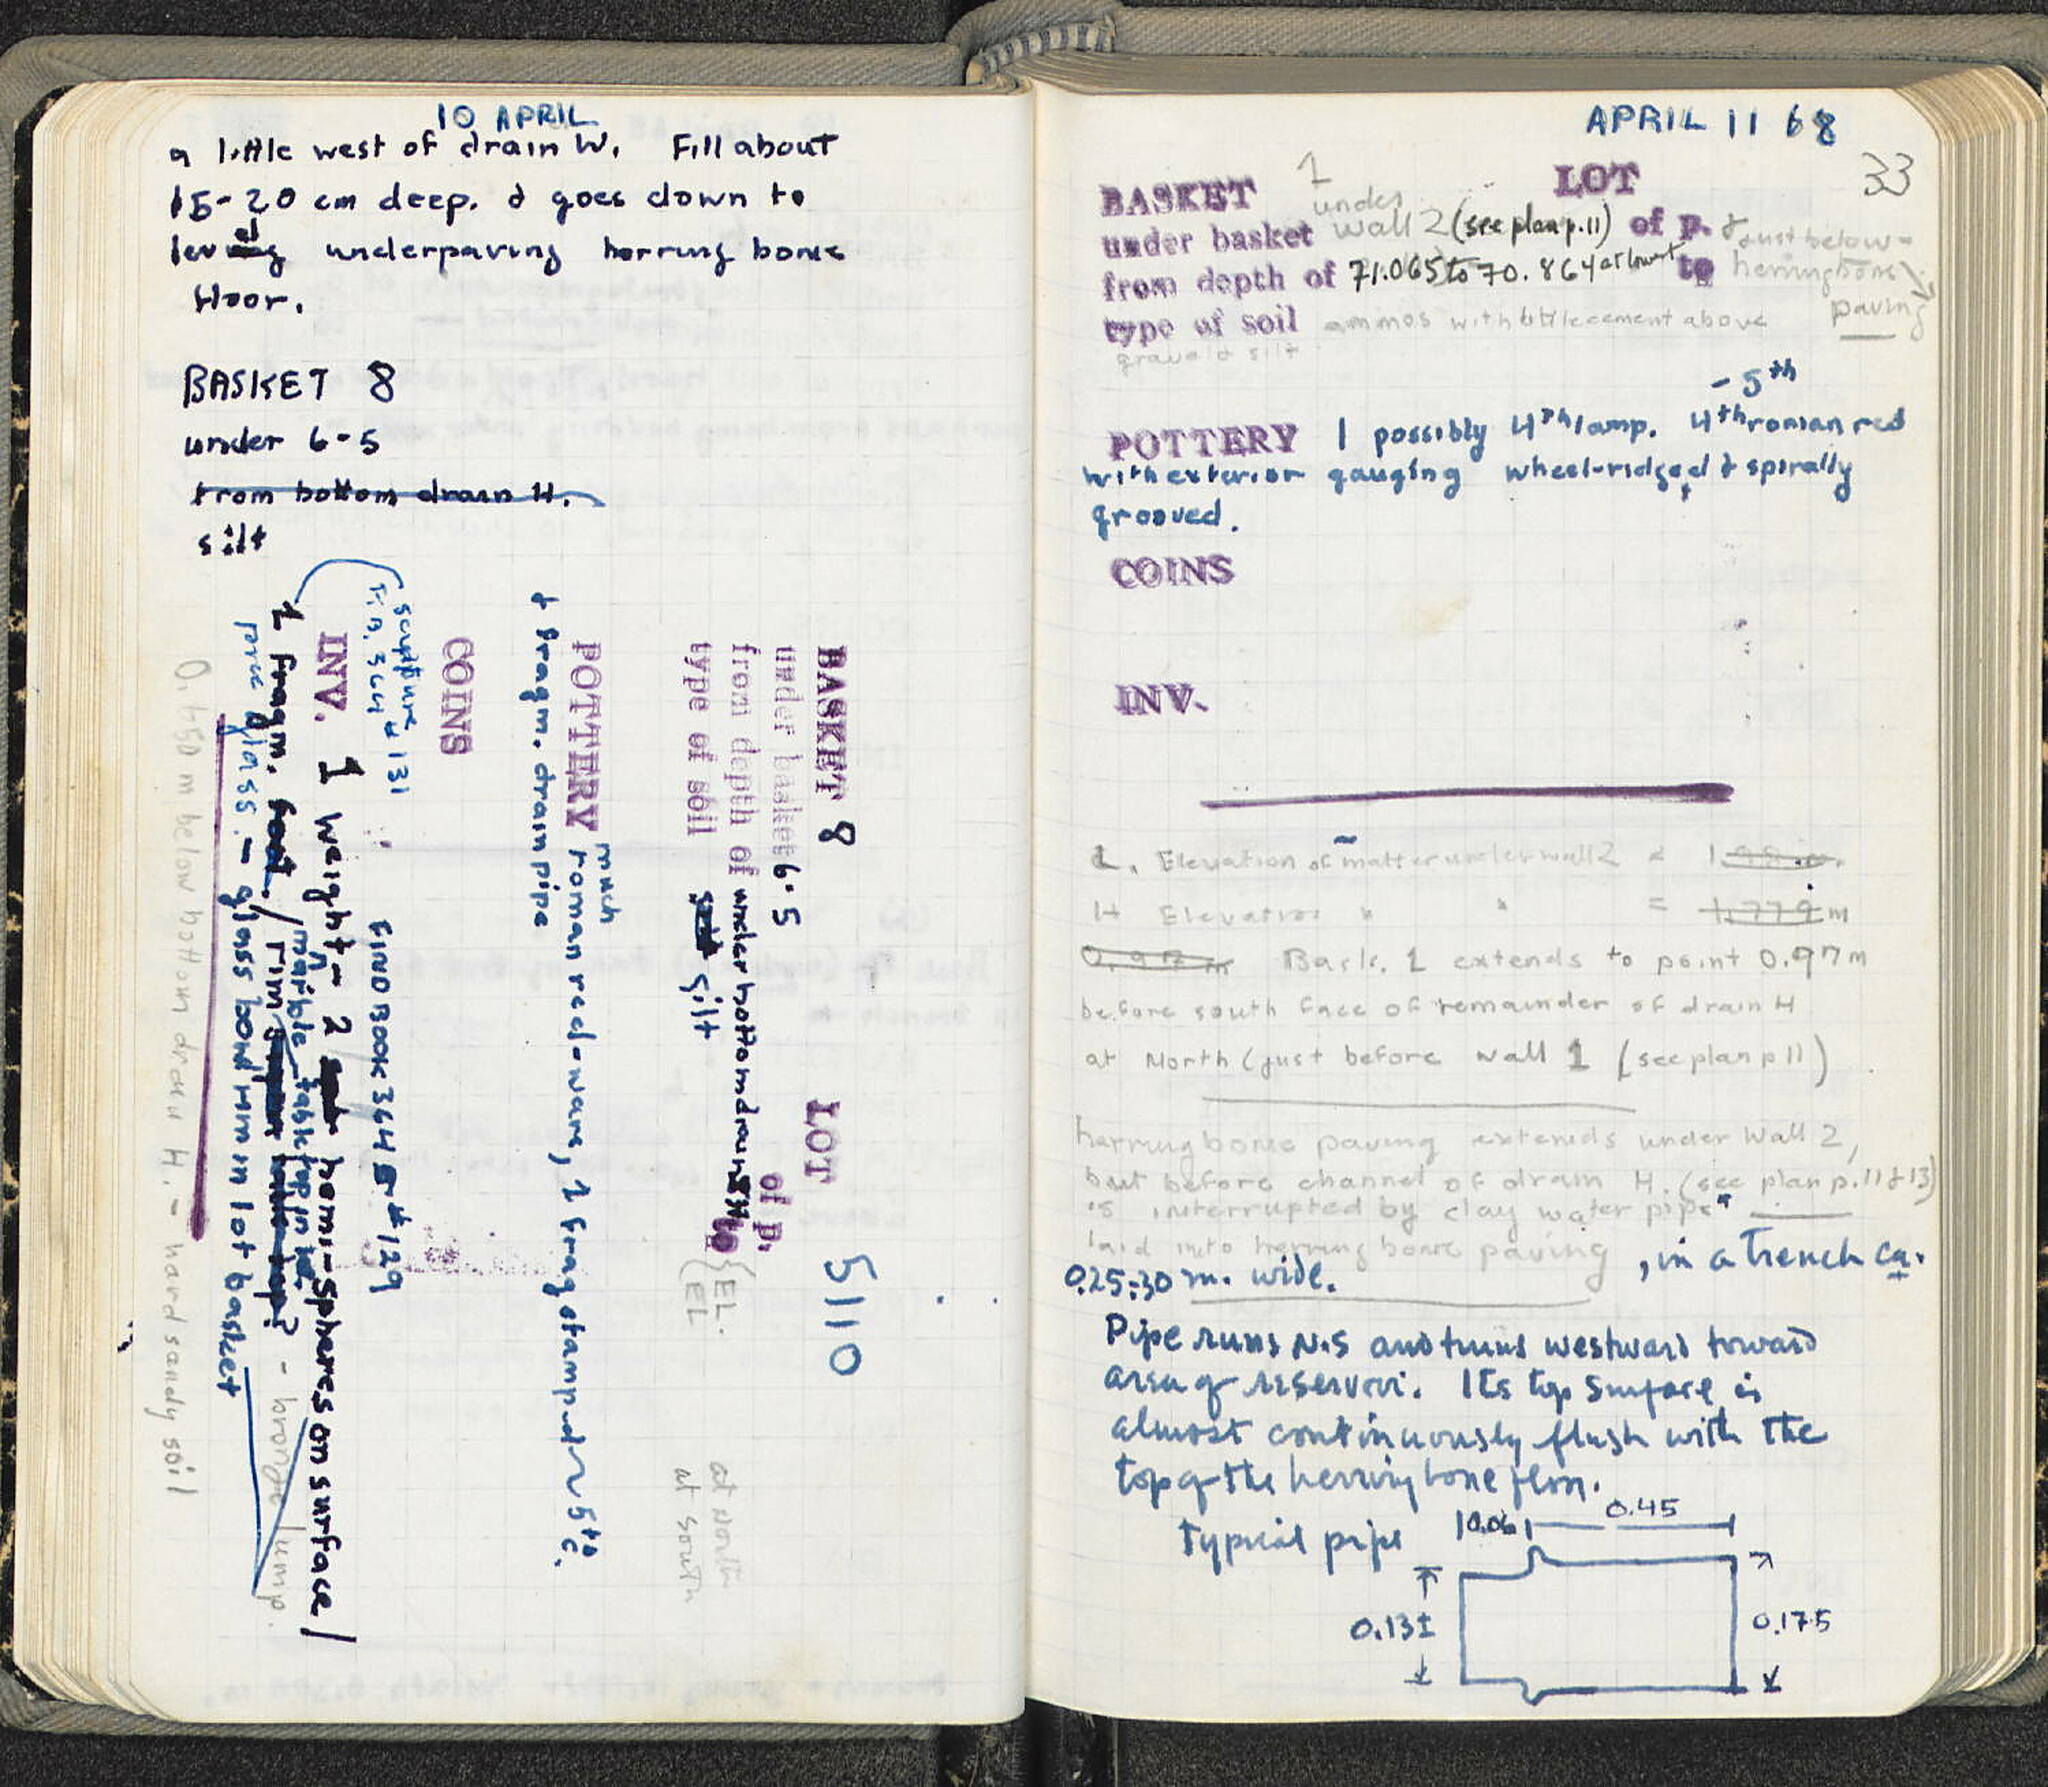 10 APRIL
a little west of drain W. Fill about
15-20 cm deep. & goes down to
level underpaving herring bone
floor.
BASKET 8
under 6-5
from bottom drain H.
silt
BASKET 8 LOT 5110
under basket 6-5 of p.
from depth of under bottom drain H to {EL. at North
type of soil silt (EL at south
POTTERY much roman red-ware, 1 frag stamped ~ 5th c.
& fragm. drain pipe
COINS
sculpture
F.B. 364 # 131 FIND BOOK 364 # 129
INV. 1 weight - 2 hemi-spheres on surface /
1 fragm. foot / rim marble table top in lot - bronze lump.
piece glass. - glass bowl rim in lot basket
0.450 m below bottom drain H. - hard sandy soil
APRIL 11 68
33
BASKET 1 LOT
under basket under wall 2 (see plan p. 11) of p. & just below
from depth of 71.065 to 70.864 at lowest to herringbone
type of soil ammos with little cement above paving
gravel & silt
- 5th
POTTERY 1 possibly 4th lamp. 4th roman red
with exterior gauging wheel-ridged & spirally
grooved.
COINS
INV.
L. Elevation of matter under wall 2 =
H Elevation " " = 1.779 m
0.97 m Bask. 1 extends to point 0.97 m
before south face of remainder of drain H
at North (just before wall 1 (see plan p 11)
herringbone paving extends under Wall 2,
but before channel of drain H. (see plan p. 11 & 13)
is interrupted by clay water pipe
laid into herringbone paving, in a trench ca.
0.25-30 m. wide.
Pipe runs N-S and turns westward toward
area of reservoir. Its top surface is
almost continuously flush with the
top of the herringbone floor.
typical pipe 0.06 0.45
0.13± 0.175